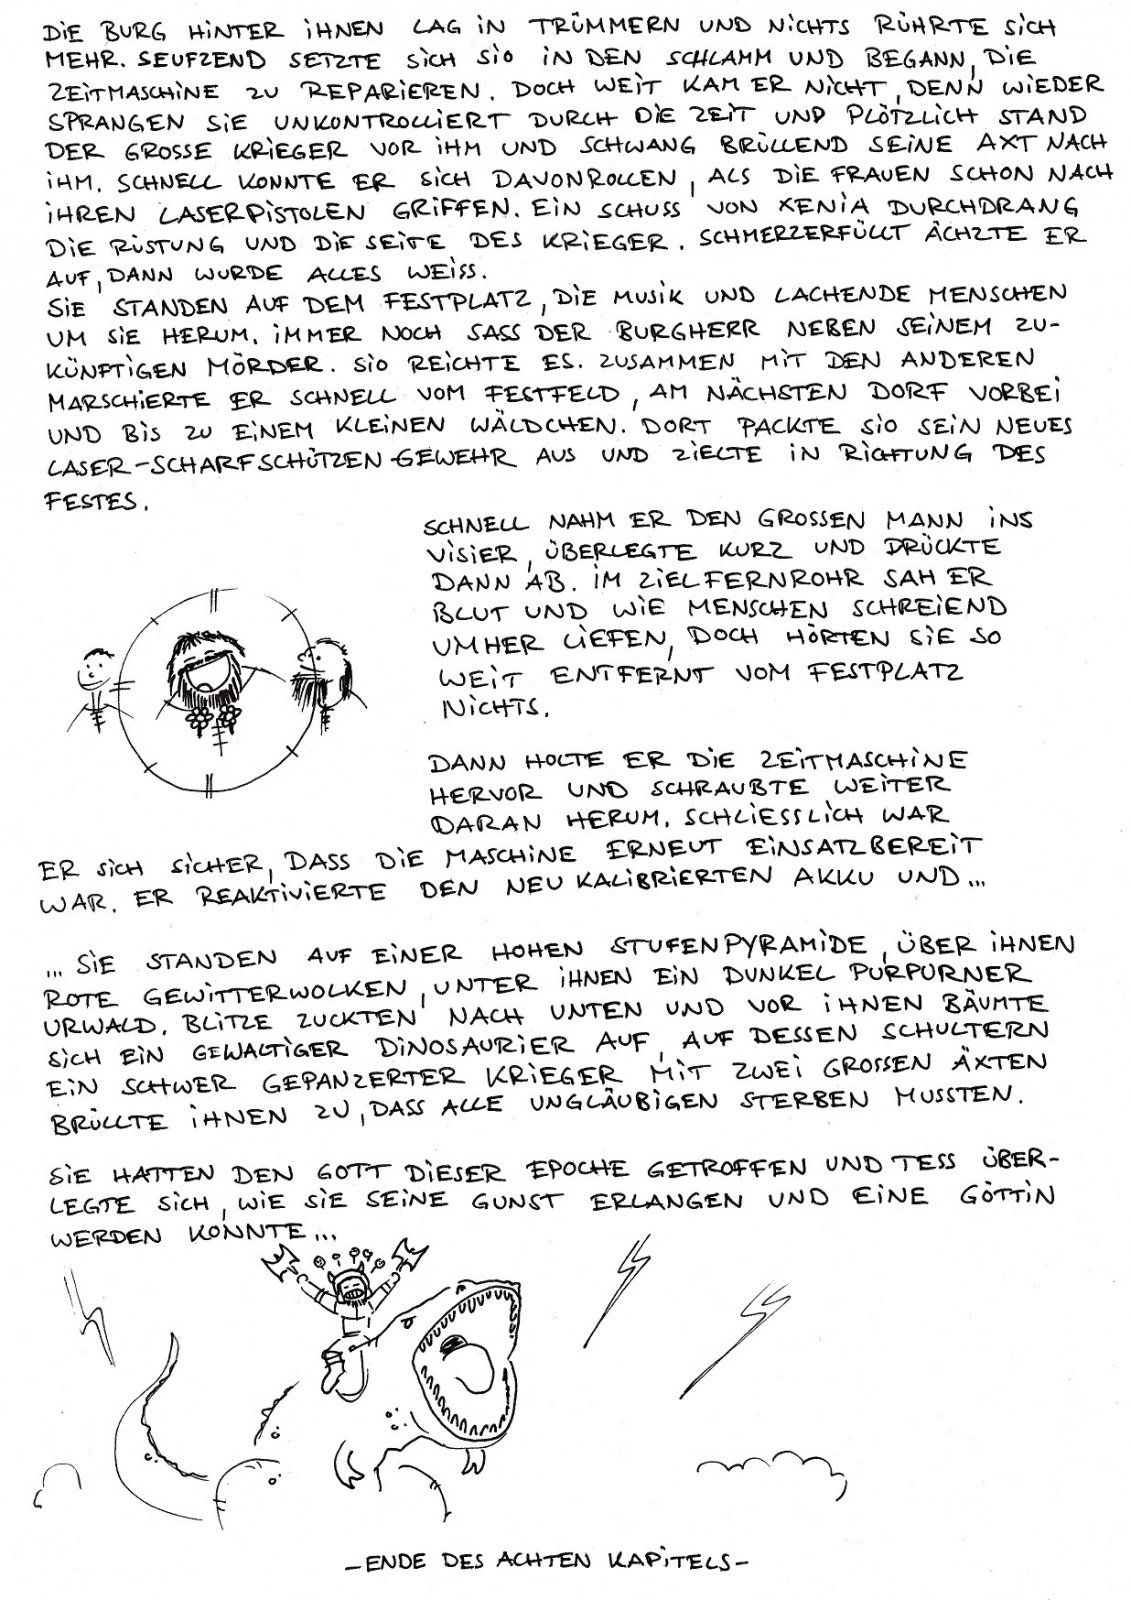 DIE BURG HINTER IHNEN LAG IN TRÜMMERN UND NICHTS RÜHRTE SICH
MEHR. SEUFZEND SETZTE SICH SIO IN DEN SCHLAMM UND BEGANN, DIE
ZEITMASCHINE ZU REPARIEREN. DOCH WEIT KAM ER NICHT, DENN WIEDER
SPRANGEN SIE UNKONTROLLIERT DURCH DIE ZEIT UND PLÖTZLICH STAND
DER GROSSE KRIEGER VOR IHM UND SCHWANG BRÜLLEND SEINE AXT NACH
IHM. SCHNELL KONNTE ER SICH DAVONROLLEN, ALS DIE FRAUEN SCHON NACH
IHREN LASERPISTOLEN GRIFFEN. EIN SCHUSS VON XENIA DURCHDRANG
DIE RÜSTUNG UND DIE SEITE DES KRIEGER. SCHMERZERFÜLLT ÄCHZTE ER
AUF, DANN WURDE ALLES WEISS.
SIE STANDEN AUF DEM FESTPLATZ, DIE MUSIK UND LACHENDE MENSCHEN
UM SIE HERUM. IMMER NOCH SASS DER BURGHERR NEBEN SEINEM ZU-
KÜNFTIGEN MÖRDER. SIO REICHTE ES. ZUSAMMEN MIT DEN ANDEREN
MARSCHIERTE ER SCHNELL VOM FESTFELD, AM NÄCHSTEN DORF VORBEI
UND BIS ZU EINEM KLEINEN WÄLDCHEN. DORT PACKTE SIO SEIN NEUES
LASER-SCHARFSCHÜTZEN-GEWEHR AUS UND ZIELTE IN RICHTUNG DES
FESTES.
SCHNELL NAHM ER DEN GROSSEN MANN INS
VISIER, ÜBERLEGTE KURZ UND DRÜCKTE
DANN AB. IM ZIELFERNROHR SAH ER
BLUT UND WIE MENSCHEN SCHREIEND
UMHER LIEFEN, DOCH HÖRTEN SIE SO
WEIT ENTFERNT VOM FESTPLATZ
NICHTS.
DANN HOLTE ER DIE ZEITMASCHINE
HERVOR UND SCHRAUBTE WEITER
DARAN HERUM. SCHLIESSLICH WAR
ER SICH SICHER, DASS DIE MASCHINE ERNEUT EINSATZBEREIT
WAR. ER REAKTIVIERTE DEN NEU KALIBRIERTEN AKKU UND...
... SIE STANDEN AUF EINER HOHEN STUFENPYRAMIDE, ÜBER IHNEN
ROTE GEWITTERWOLKEN, UNTER IHNEN EIN DUNKEL PURPURNER
URWALD. BLITZE ZUCKTEN NACH UNTEN UND VOR IHNEN BÄUMTE
SICH EIN GEWALTIGER DINOSAURIER AUF, AUF DESSEN SCHULTERN
EIN SCHWER GEPANZERTER KRIEGER MIT ZWEI GROSSEN ÄXTEN
BRÜLLTE IHNEN ZU, DASS ALLE UNGLÄUBIGEN STERBEN MUSSTEN.
SIE HATTEN DEN GOTT DIESER EPOCHE GETROFFEN UND TESS ÜBER-
LEGTE SICH, WIE SIE SEINE GUNST ERLANGEN UND EINE GÖTTIN
WERDEN KONNTE...
-ENDE DES ACHTEN KAPITELS-